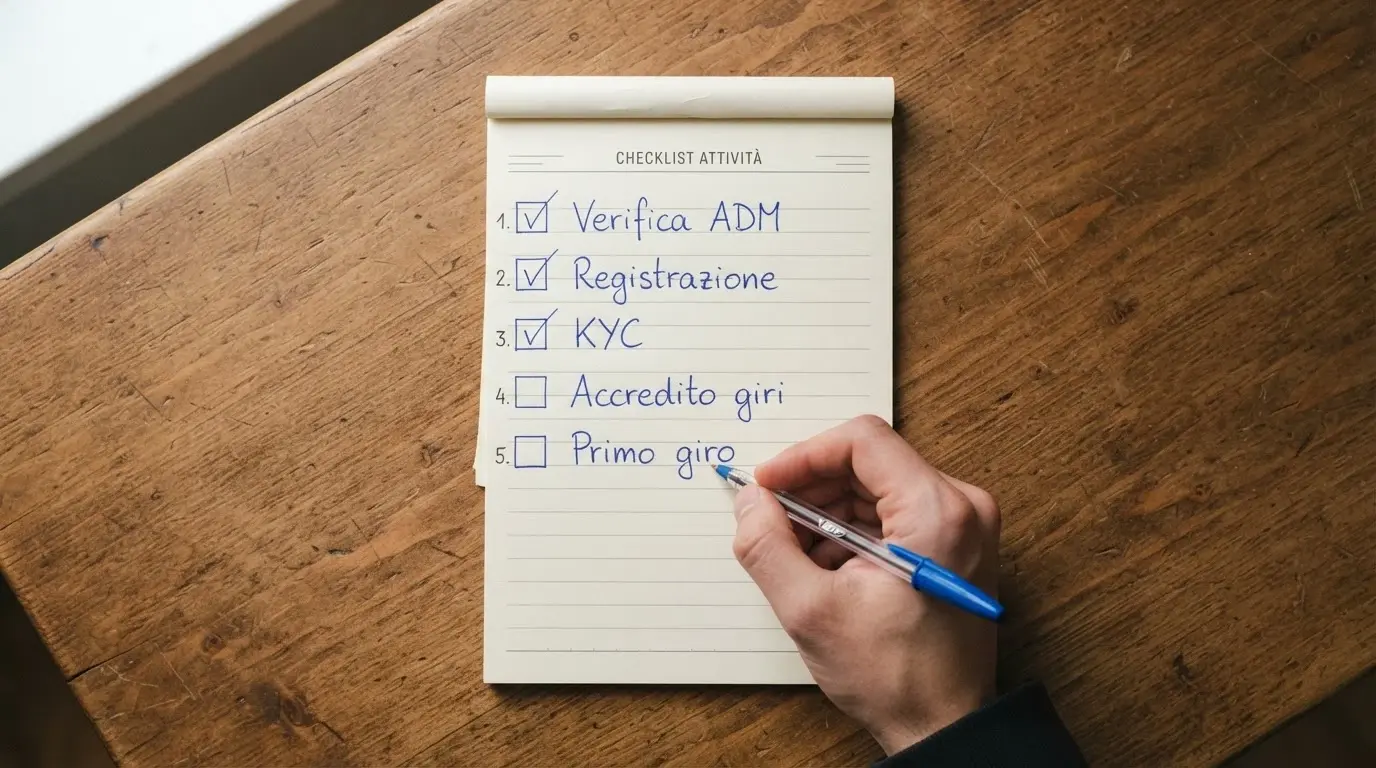 CHECKLIST ATTIVITÀ
1. Verifica ADM
2. Registrazione
3. KYC
4. Accredito giri
5. Primo giro